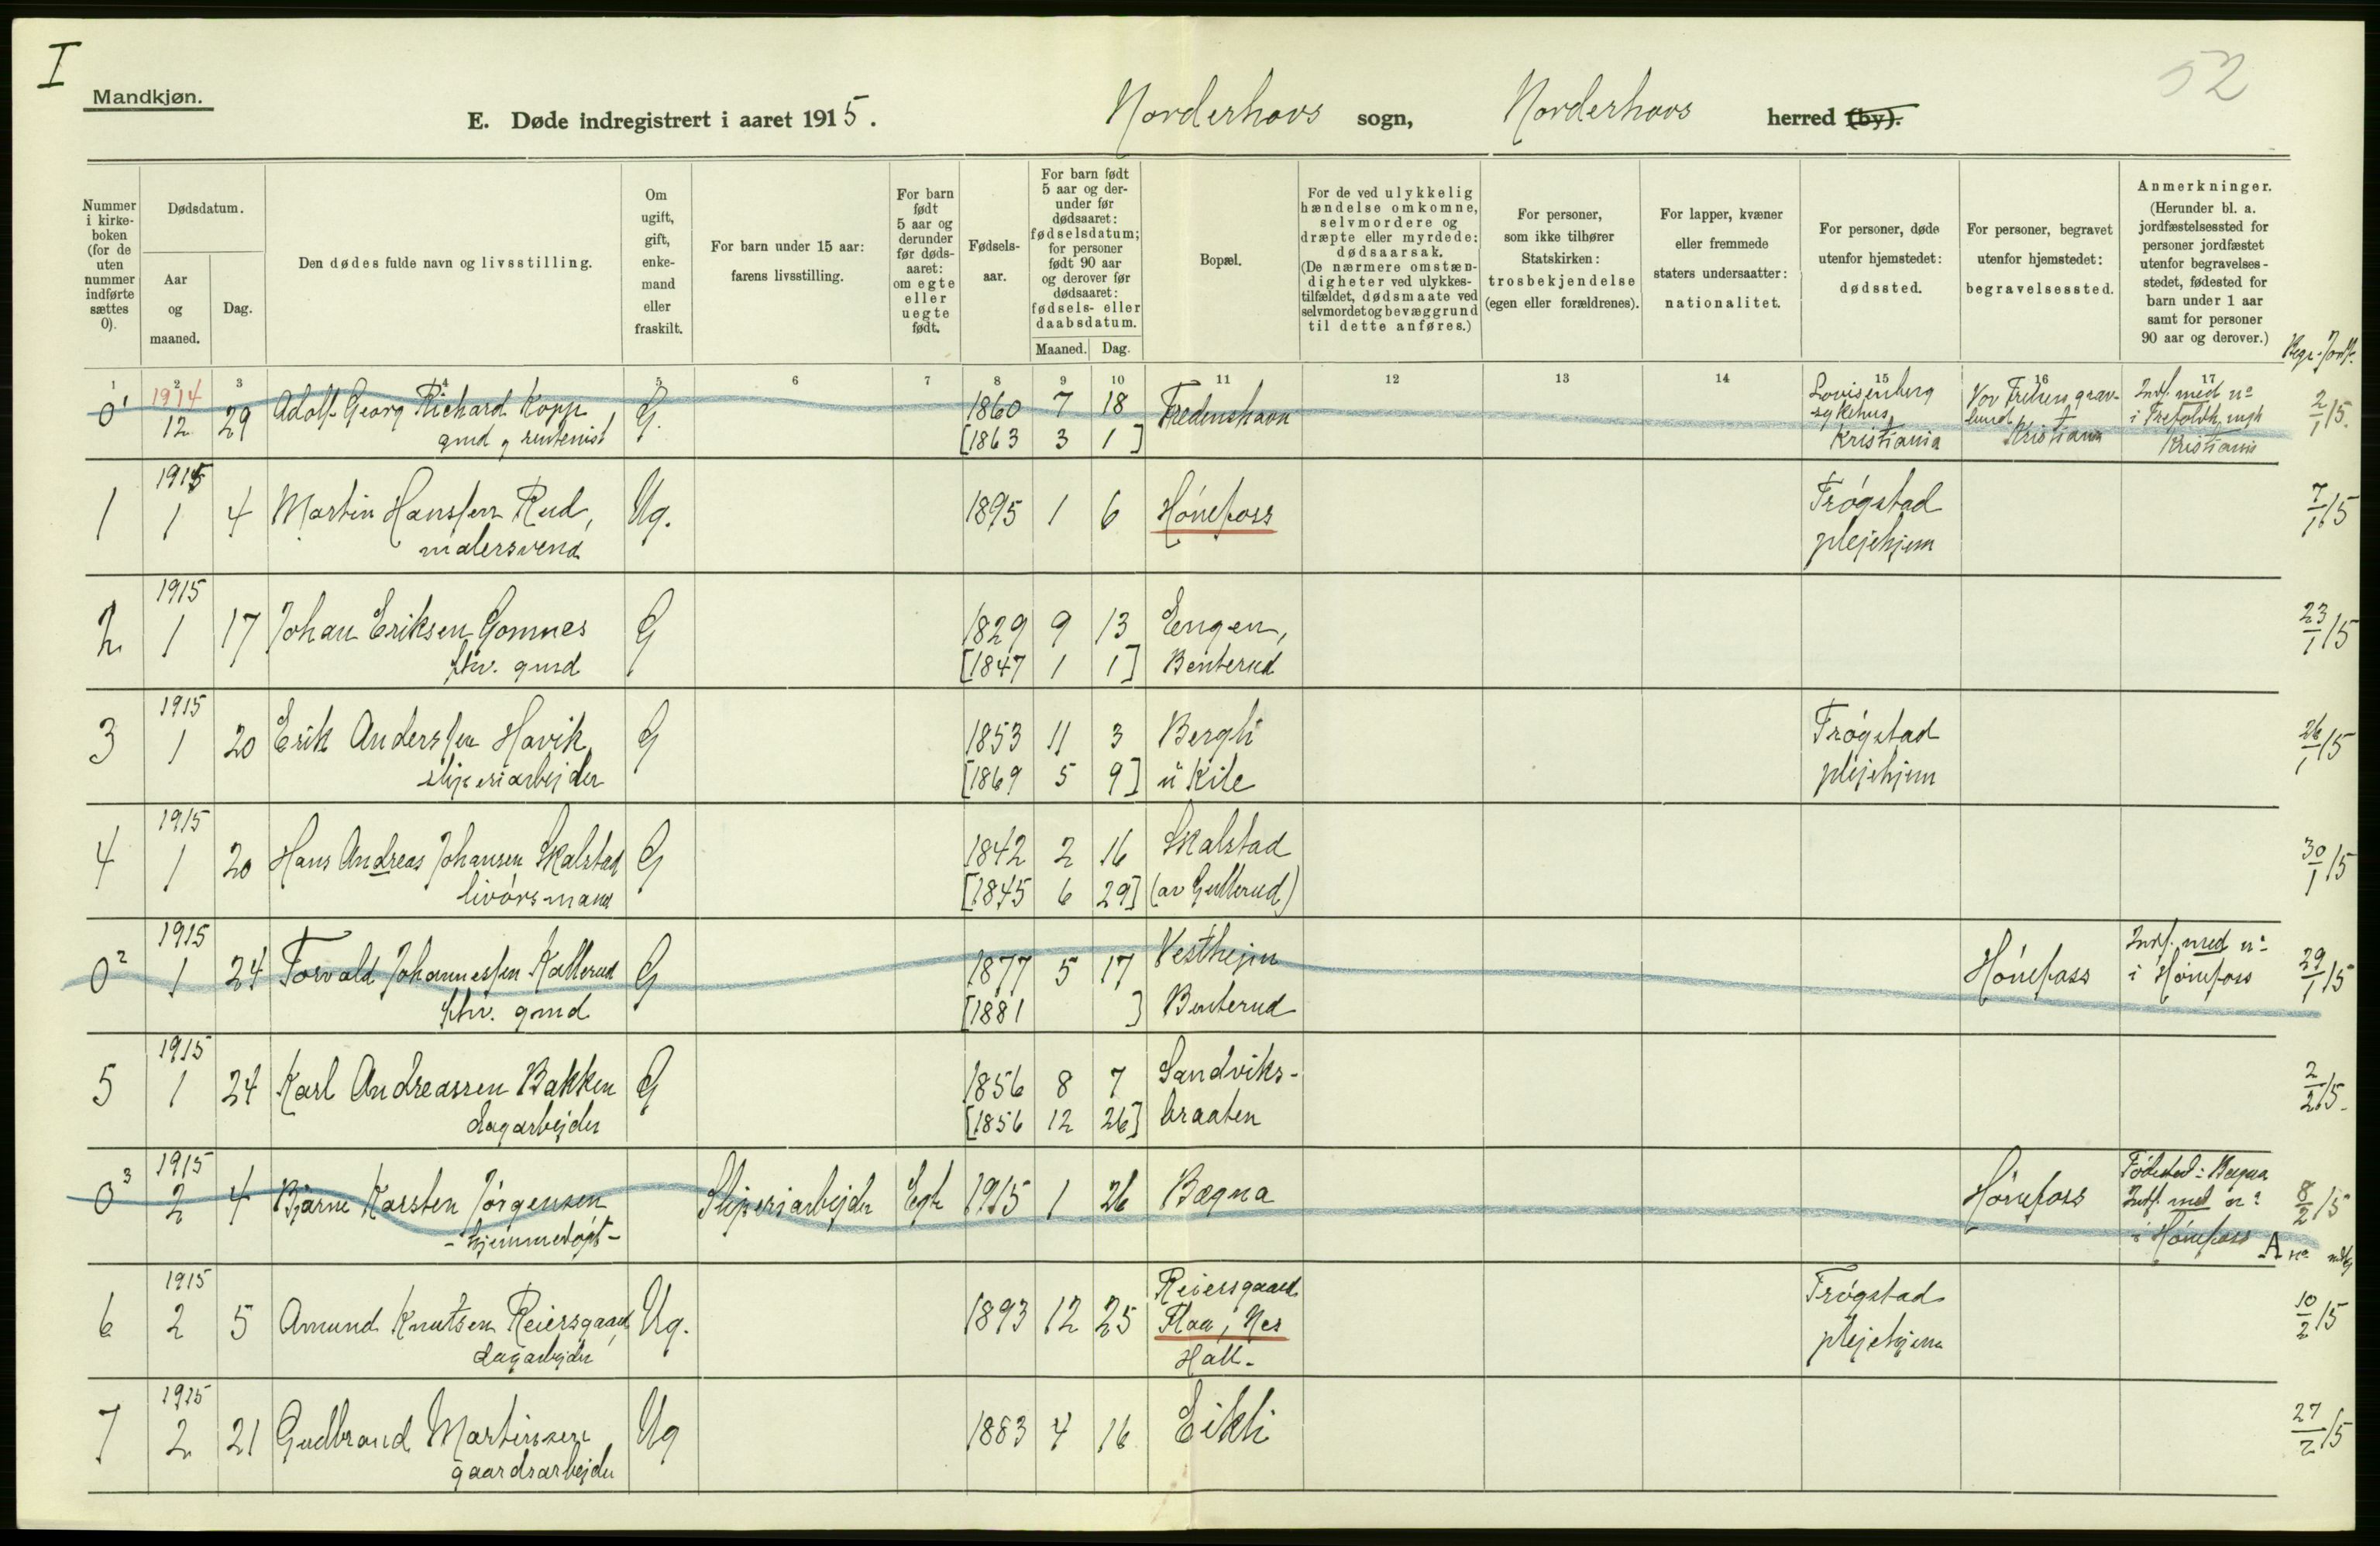 I
52
Mandkjøn.
E. Døde indregistrert i aaret 1915. Norderhovs sogn, Norderhovs herred (by).
Nummer i kirkeboken (for de uten nummer indførte sættes 0).
Dødsdatum.
Aar og maaned.
Dag.
Den dødes fulde navn og livsstilling.
Om ugift, gift, enkemand eller fraskilt.
For barn under 15 aar: farens livsstilling.
For barn født 5 aar og derunder før dødsaaret: om egte eller uegte født.
Fødselsaar.
For barn født 5 aar og derunder før dødsaaret: fødselsdatum; for personer født 90 aar og derover før dødsaaret: fødsels- eller daabsdatum.
Maaned. Dag.
Bopæl.
For de ved ulykkelig hændelse omkomne, selvmordere og dræpte eller myrdede: dødsaarsak. (De nærmere omstændigheter ved ulykkestilfældet, dødsmaate ved selvmordet og bevæggrund til dette anføres.)
For personer, som ikke tilhører Statskirken: trosbekjendelse (egen eller forældrenes).
For lapper, kvæner eller fremmede staters undersaatter: nationalitet.
For personer, døde utenfor hjemstedet: dødssted.
For personer, begravet utenfor hjemstedet: begravelsessted.
Anmerkninger. (Herunder bl. a. jordfæstelsessted for personer jordfæstet utenfor begravelsesstedet, fødested for barn under 1 aar samt for personer 90 aar og derover.)
1 2 3 4 5 6 7 8 9 10 11 12 13 14 15 16 17
0¹ 1914 12 29 Adolf Georg Richard Kopp, G. 1860 7 18 Fredenshavn Lovisenberg sykehus Kristiania Vor Frelsers gravlund Kristiania Indf. med nº i Kristiania 2/1 15.
gmd og rentenist [1863 3 1]
1 1915 1 4 Martin Hanssen Rud, Ug. 1895 1 6 Hönefoss Frøgstad 7/1 15
malersvend plejehjem
2 1915 1 17 Johan Eriksen Gomnes G 1829 9 13 Engen, 23/1 15
fhv. gmd [1847 1 1] Benterud
3 1915 1 20 Erik Anderssen Havik G 1853 11 3 Bergli Frøgstad 26/1 15
sliperiarbejder [1869 5 9] u Kile plejehjem
4 1915 1 20 Hans Andreas Johansen Skalstad G 1842 2 16 Skalstad 30/1 15
livörsmand [1845 6 29] (av Gullerud)
0² 1915 1 24 Torvald Johannessen Kallerud G 1877 5 17 Vesthejm Hönefoss Indf. med nº i Hönefoss 29/1 15
fhv. gmd [1881 ] Benterud
5 1915 1 24 Karl Andreassen Bakken G 1856 8 7 Sandviks- 2/2 15.
dagarbejder [1856 12 26] braaten
0³ 1915 2 4 Bjarne Karsten Jörgensen Sliperiarbejder Egte 1915 1 26 Bægna Hönefoss Födested: Bægna Indf. med nº i Hönefoss 8/2 15
- hjemmedöpt - A nº
6 1915 2 5 Amund Knutsen Reiersgaard, Ug. 1893 12 25 Reiersgaard Frøgstad 10/2 15
dagarbejder Flaa, Nes plejehjem
Hall.
7 1915 2 21 Gudbrand Martinsen Ug 1883 4 16 Eikli 27/2 15
gaardsarbejder